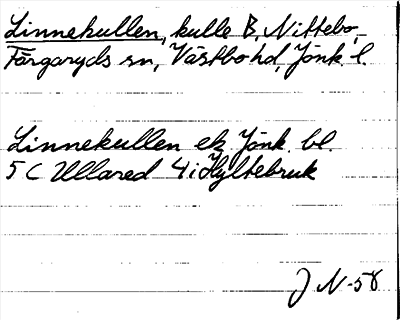 Linnekullen, kulle B, Nittebo,
Färgaryds sn, Västbo hd, Jönk. l.
Linnekullen ek Jönk. bl.
5 C Ullared 4 i Hyltebruk
J N-58